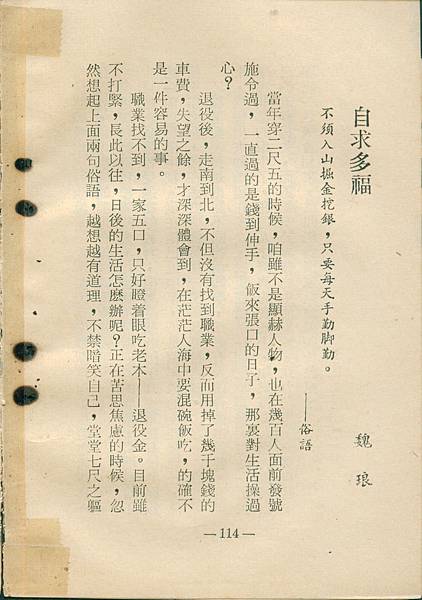 自求多福
魏琅
不須入山掘金挖銀，只要每天手勤脚勤。
——俗語
當年穿二尺五的時候，咱雖不是顯赫人物，也在幾百人面前發號
施令過，一直過的是錢到伸手，飯來張口的日子，那裏對生活操過
心？
退役後，走南到北，不但沒有找到職業，反而用掉了幾千塊錢的
車費，失望之餘，才深深體會到，在茫茫人海中要混碗飯吃，的確不
是一件容易的事。
職業找不到，一家五口，只好瞪着眼吃老本——退役金。目前雖
不打緊，長此以往，日後的生活怎麽辦呢？正在苦思焦慮的時候，忽
然想起上面兩句俗語，越想越有道理，不禁暗笑自己，堂堂七尺之軀
—114—